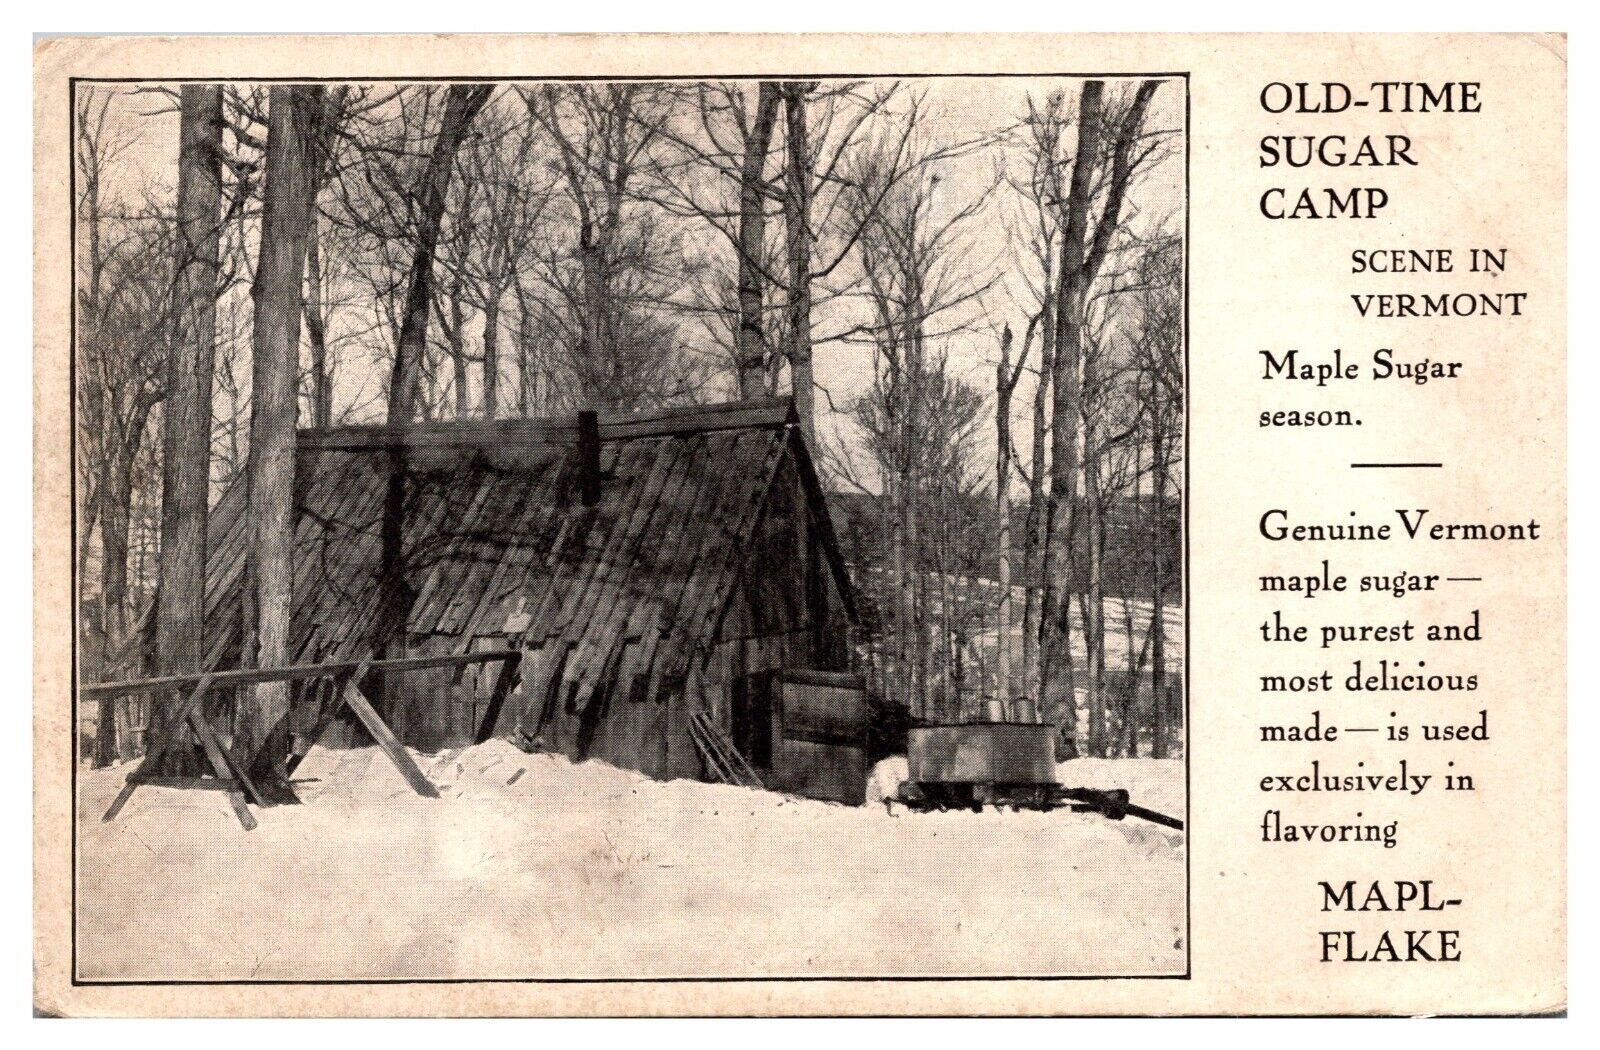 OLD-TIME
SUGAR
CAMP
SCENE IN
VERMONT
Maple Sugar
season.
Genuine Vermont
maple sugar —
the purest and
most delicious
made — is used
exclusively in
flavoring
MAPL-
FLAKE